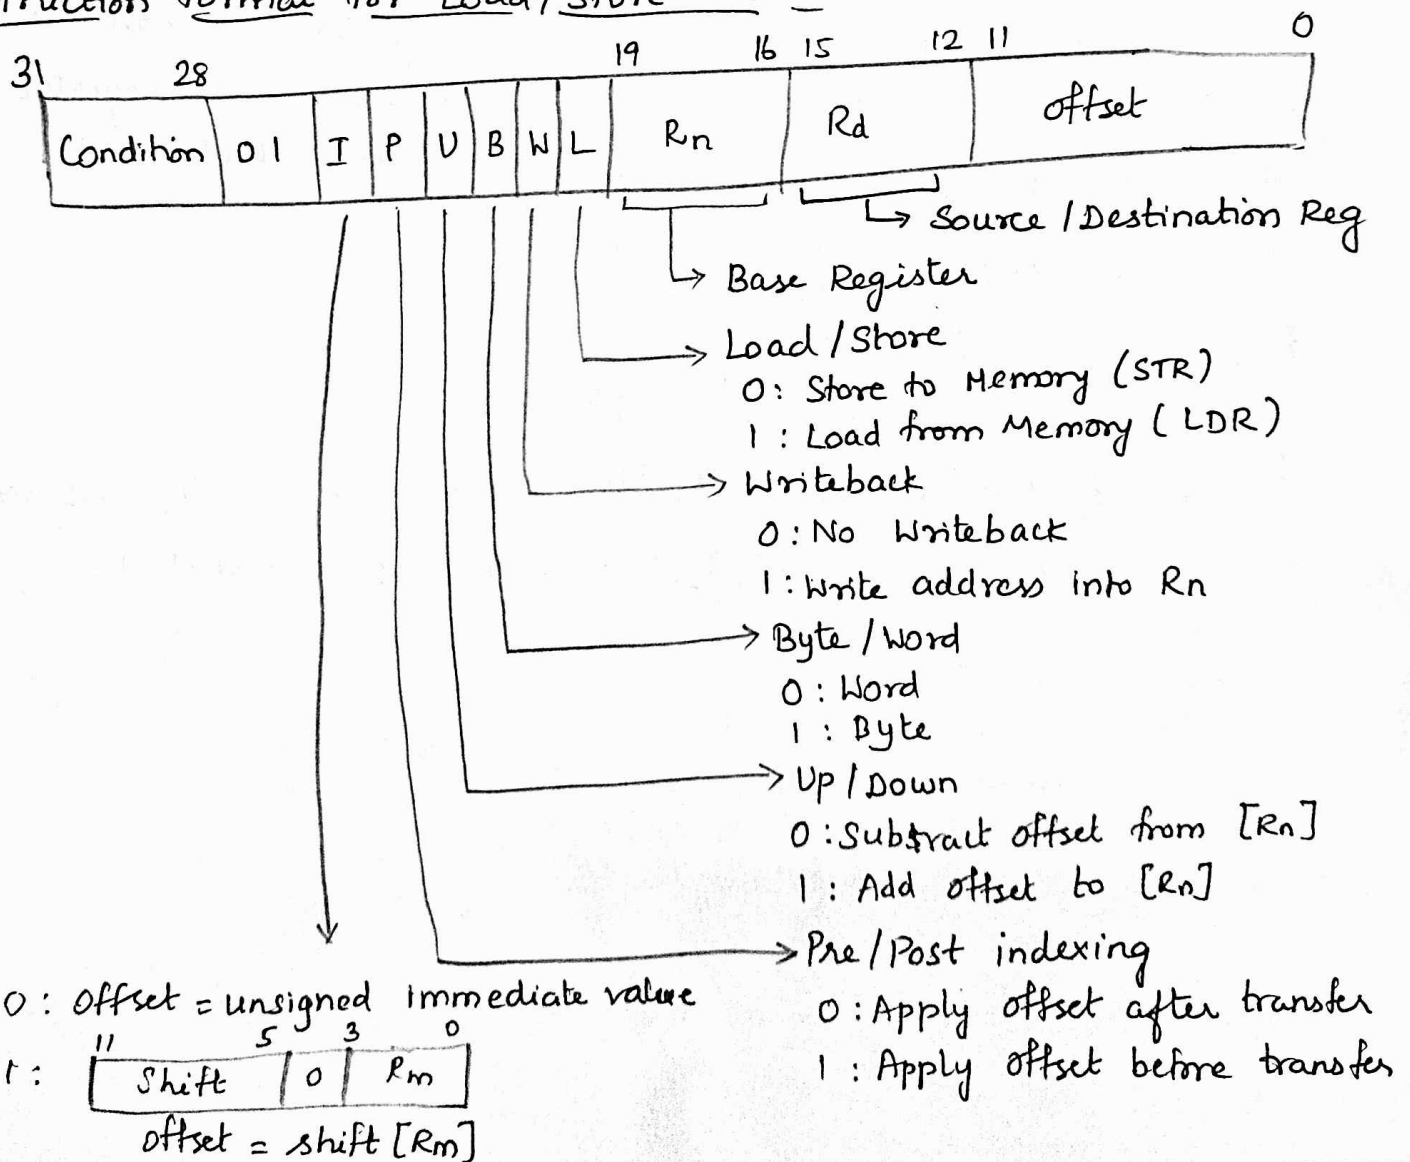 Format for Load / Store
31 28 19 16 15 12 11 0
Condition 0 1 I P U B W L Rn Rd offset
Source / Destination Reg
Base Register
Load / Store
0: Store to Memory (STR)
1: Load from Memory (LDR)
Writeback
0: No Writeback
1: Write address into Rn
Byte / Word
0: Word
1: Byte
Up / Down
0: Subtract offset from [Rn]
1: Add offset to [Rn]
Pre / Post indexing
0: Apply offset after transfer
1: Apply offset before transfer
0: offset = unsigned immediate value
11 5 3 0
1: Shift 0 Rm
offset = shift [Rm]